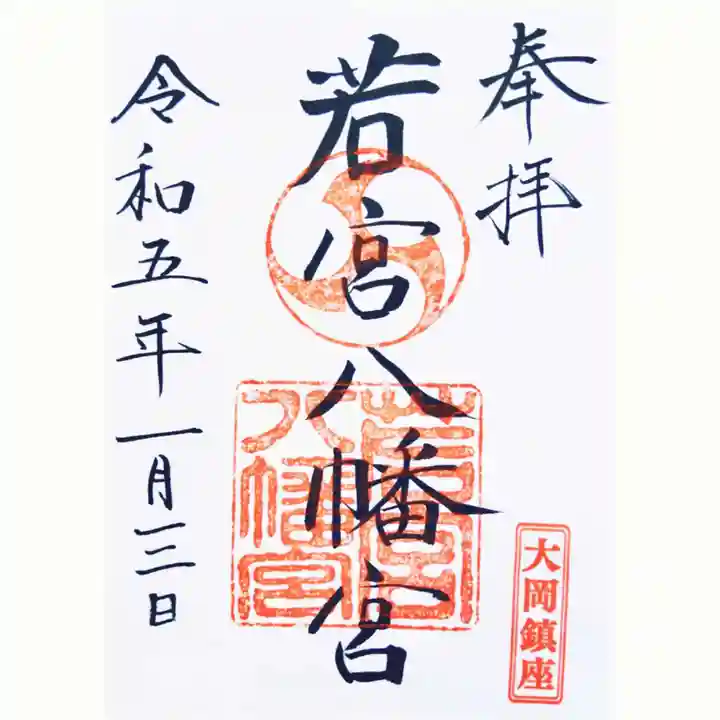 奉拝
若宮八幡宮
若宮八幡宮
大岡鎮座
令和五年一月三日